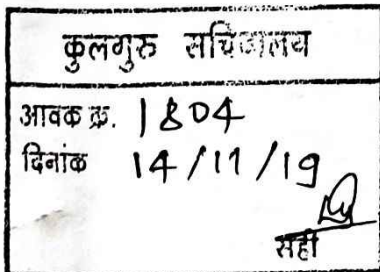 कुलगुरु सचिवालय
आवक क्र. 1804
दिनांक 14/11/19
सही